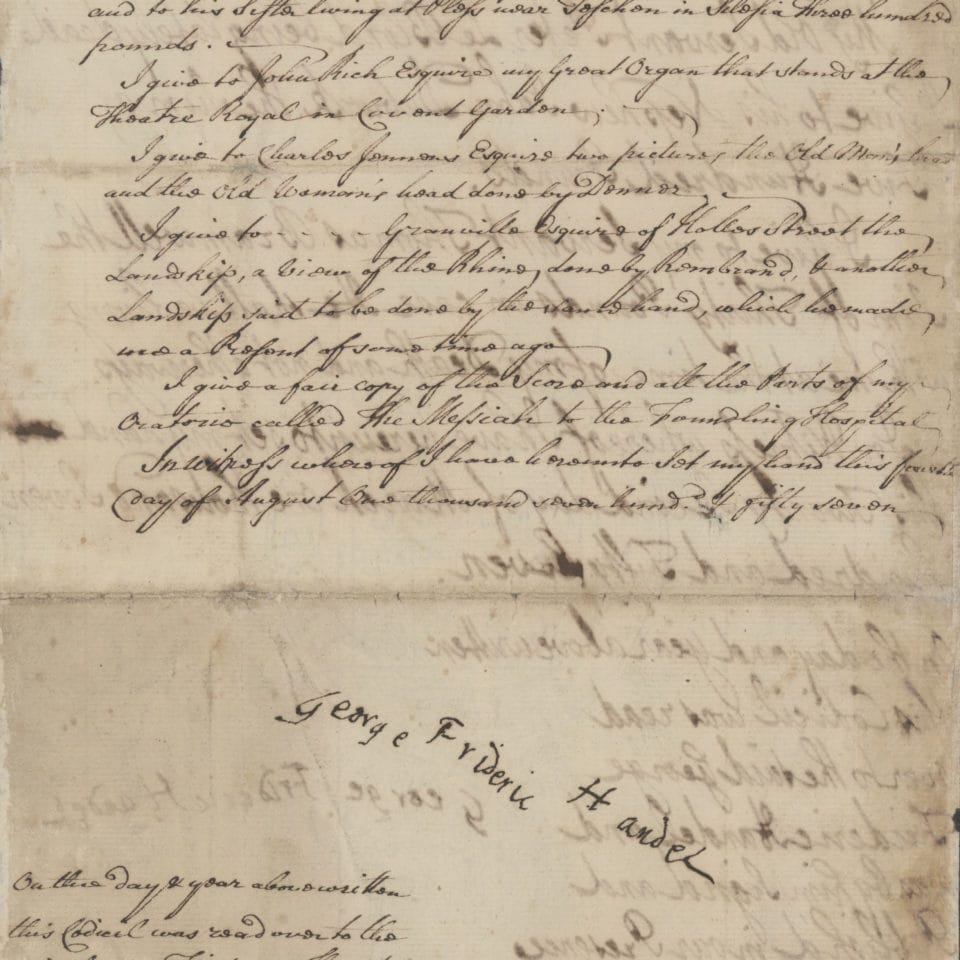 and to his Sister living at Pless near Teschen in Silesia Three hundred
pounds.
I give to John Rich Esquire my Great Organ that stands at the
Theatre Royal in Covent Garden
I give to Charles Jennens Esquire two pictures the Old Man's head
and the Old Woman's head done by Denner
I give to - - - - Granville Esquire of Holles Street the
Landskip, a View of the Rhine, done by Rembrand, & another
Landskip said to be done by the same hand, which he made
me a Present of some time ago
I give a fair copy of the Score and all the Parts of my
Oratorio called The Messiah to the Foundling Hospital
In witness whereof I have hereunto Set my hand this fourth
day of August One thousand seven hund.d & fifty seven
George Frideric Handel
On the day & year above written
this Codicil was read over to the